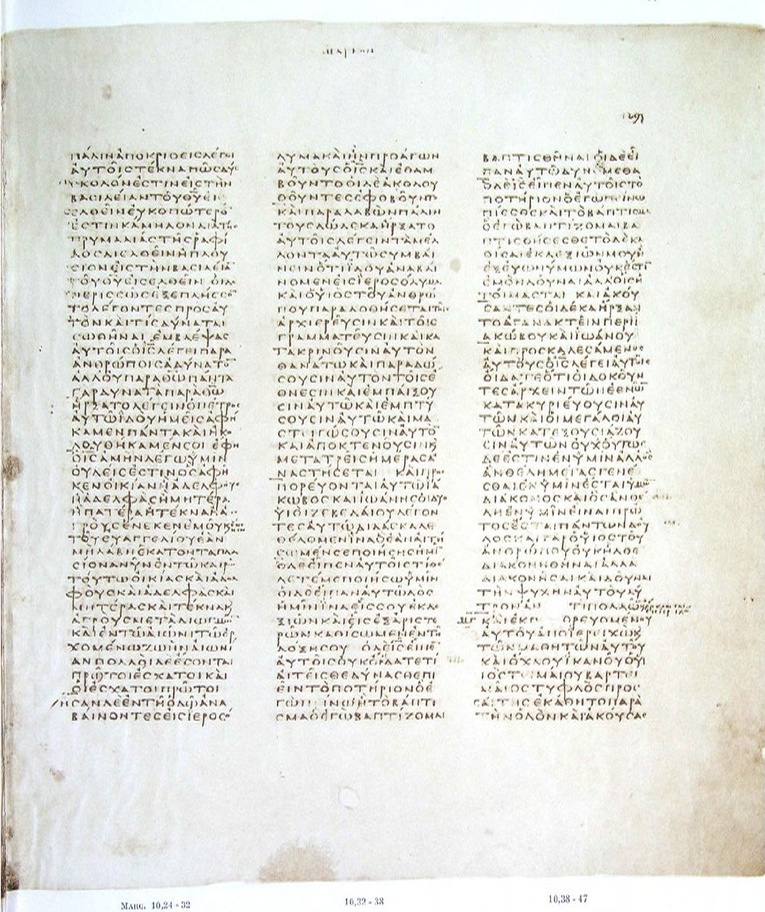 ΜΑΡΚΟΝ
ΠΑΛΙΝΑΠΟΚΡΙΘΕΙϹΛΕΓΕΙ
ΑΥΤΟΙϹΤΕΚΝΑΠΩϹΔΥ
ϹΚΟΛΟΝΕϹΤΙΝΕΙϹΤΗΝ
ΒΑϹΙΛΕΙΑΝΤΟΥΘΥΕΙϹ
ΕΛΘΕΙΝΕΥΚΟΠΩΤΕΡΟ
ΕϹΤΙΝΚΑΜΗΛΟΝΔΙΑΤΗϹ
ΤΡΥΜΑΛΙΑϹΤΗϹΡΑΦΙ
ΔΟϹΔΙΕΛΘΕΙΝΗΠΛΟΥ
ϹΙΟΝΕΙϹΤΗΝΒΑϹΙΛΕΙΑ
ΤΟΥΘΥΕΙϹΕΛΘΕΙΝ ΟΙΔΕ
ΠΕΡΙϹϹΩϹΕΞΕΠΛΗϹϹΟ
ΤΟΛΕΓΟΝΤΕϹΠΡΟϹΑΥ
ΤΟΝΚΑΙΤΙϹΔΥΝΑΤΑΙ
ϹΩΘΗΝΑΙ ΕΜΒΛΕΨΑϹ
ΑΥΤΟΙϹΟΙϹΛΕΓΕΙΠΑΡΑ
ΑΝΘΡΩΠΟΙϹΑΔΥΝΑΤΟ
ΑΛΛΟΥΠΑΡΑΘΩΠΑΝΤΑ
ΓΑΡΔΥΝΑΤΑΠΑΡΑΘΩ
ΗΡΞΑΤΟΛΕΓΕΙΝΟΠΕΤΡΟϹ
ΑΥΤΩΙΔΟΥΗΜΕΙϹΑΦΗ
ΚΑΜΕΝΠΑΝΤΑΚΑΙΗΚΟ
ΛΟΥΘΗΚΑΜΕΝϹΟΙ ΕΦΗ
ΟΙϹΑΜΗΝΛΕΓΩΥΜΙΝ
ΟΥΔΕΙϹΕϹΤΙΝΟϹΑΦΗ
ΚΕΝΟΙΚΙΑΝΗΑΔΕΛΦΟΥϹ
ΗΑΔΕΛΦΑϹΗΜΗΤΕΡΑ
ΗΠΑΤΕΡΑΗΤΕΚΝΑΗΑ
ΓΡΟΥϹΕΝΕΚΕΝΕΜΟΥΚΑΙ
ΤΟΥΕΥΑΓΓΕΛΙΟΥΕΑΝ
ΜΗΛΑΒΗΕΚΑΤΟΝΤΑΠΛΑ
ϹΙΟΝΑΝΥΝΕΝΤΩΚΑΙΡΩ
ΤΟΥΤΩΟΙΚΙΑϹΚΑΙΑΔΕΛ
ΦΟΥϹΚΑΙΑΔΕΛΦΑϹΚΑΙ
ΜΗΤΕΡΑϹΚΑΙΤΕΚΝΑΚΑΙ
ΑΓΡΟΥϹΜΕΤΑΔΙΩΓΜΩ
ΚΑΙΕΝΤΩΑΙΩΝΙΤΩΕΡ
ΧΟΜΕΝΩΖΩΗΝΑΙΩΝΙ
ΑΝΠΟΛΛΟΙΔΕΕϹΟΝΤΑΙ
ΠΡΩΤΟΙΕϹΧΑΤΟΙΚΑΙ
ΟΙΕϹΧΑΤΟΙΠΡΩΤΟΙ
ΗϹΑΝΔΕΕΝΤΗΟΔΩΑΝΑ
ΒΑΙΝΟΝΤΕϹΕΙϹΙΕΡΟϹΟ
ΛΥΜΑΚΑΙΗΝΠΡΟΑΓΩΝ
ΑΥΤΟΥϹΟΙϹΚΑΙΕΘΑΜ
ΒΟΥΝΤΟΟΙΔΕΑΚΟΛΟΥ
ΘΟΥΝΤΕϹΕΦΟΒΟΥΝΤΟ
ΚΑΙΠΑΡΑΛΑΒΩΝΠΑΛΙΝ
ΤΟΥϹΔΩΔΕΚΑΗΡΞΑΤΟ
ΑΥΤΟΙϹΛΕΓΕΙΝΤΑΜΕΛ
ΛΟΝΤΑΑΥΤΩϹΥΜΒΑΙ
ΝΕΙΝΟΤΙΙΔΟΥΑΝΑΒΑΙ
ΝΟΜΕΝΕΙϹΙΕΡΟϹΟΛΥΜΑ
ΚΑΙΟΥΙΟϹΤΟΥΑΝΘΡΩ
ΠΟΥΠΑΡΑΔΟΘΗϹΕΤΑΙΤΟΙϹ
ΑΡΧΙΕΡΕΥϹΙΝΚΑΙΤΟΙϹ
ΓΡΑΜΜΑΤΕΥϹΙΝΚΑΙΚΑ
ΤΑΚΡΙΝΟΥϹΙΝΑΥΤΟΝ
ΘΑΝΑΤΩΚΑΙΠΑΡΑΔΩ
ϹΟΥϹΙΝΑΥΤΟΝΤΟΙϹΕ
ΘΝΕϹΙΝΚΑΙΕΜΠΑΙΞΟΥ
ϹΙΝΑΥΤΩΚΑΙΕΜΠΤΥ
ϹΟΥϹΙΝΑΥΤΩΚΑΙΜΑ
ϹΤΙΓΩϹΟΥϹΙΝΑΥΤΟ
ΚΑΙΑΠΟΚΤΕΝΟΥϹΙΝΚ
ΜΕΤΑΤΡΕΙϹΗΜΕΡΑϹΑ
ΝΑϹΤΗϹΕΤΑΙ ΚΑΙΠΡΟϹ
ΠΟΡΕΥΟΝΤΑΙΑΥΤΩΙΑ
ΚΩΒΟϹΚΑΙΙΩΑΝΗϹΟΙΔΥΟ
ΥΙΟΙΖΕΒΕΔΑΙΟΥΛΕΓΟΝ
ΤΕϹΑΥΤΩΔΙΔΑϹΚΑΛΕ
ΘΕΛΟΜΕΝΙΝΑΟΕΑΝΑΙΤΗ
ϹΩΜΕΝϹΕΠΟΙΗϹΗϹΗΜΙ
ΟΔΕΕΙΠΕΝΑΥΤΟΙϹΤΙΘΕ
ΛΕΤΕΜΕΠΟΙΗϹΩΥΜΙΝ
ΟΙΔΕΕΙΠΑΝΑΥΤΩΔΟϹ
ΗΜΙΝΙΝΑΕΙϹϹΟΥΕΚΔΕ
ΞΙΩΝΚΑΙΕΙϹΕΞΑΡΙϹΤΕ
ΡΩΝΚΑΘΙϹΩΜΕΝΕΝΤΗ
ΔΟΞΗϹΟΥ ΟΔΕΙϹΕΙΠΕ
ΑΥΤΟΙϹΟΥΚΟΙΔΑΤΕΤΙ
ΑΙΤΕΙϹΘΕΔΥΝΑϹΘΕΠΙ
ΕΙΝΤΟΠΟΤΗΡΙΟΝΟΕ
ΓΩΠΙΝΩΗΤΟΒΑΠΤΙ
ϹΜΑΟΕΓΩΒΑΠΤΙΖΟΜΑΙ
ΒΑΠΤΙϹΘΗΝΑΙ ΟΙΔΕΕΙ
ΠΑΝΑΥΤΩΔΥΝΑΜΕΘΑ
ΟΔΕΙϹΕΙΠΕΝΑΥΤΟΙϹΤΟ
ΠΟΤΗΡΙΟΝΟΕΓΩΠΕΙΝΩ
ΠΙΕϹΘΕΚΑΙΤΟΒΑΠΤΙϹΜΑ
ΟΕΓΩΒΑΠΤΙΖΟΜΑΙΒΑ
ΠΤΙϹΘΗϹΕϹΘΕΤΟΔΕΚΑ
ΘΙϹΑΙΕΚΔΕΞΙΩΝΜΟΥΗ
ΕΞΕΥΩΝΥΜΩΝΟΥΚΕϹΤΙ
ΕΜΟΝΔΟΥΝΑΙΑΛΛΟΙϹΗ
ΤΟΙΜΑϹΤΑΙ ΚΑΙΑΚΟΥ
ϹΑΝΤΕϹΟΙΔΕΚΑΗΡΞΑΝ
ΤΟΑΓΑΝΑΚΤΕΙΝΠΕΡΙΙ
ΑΚΩΒΟΥΚΑΙΙΩΑΝΟΥ
ΚΑΙΠΡΟϹΚΑΛΕϹΑΜΕΝΟϹ
ΑΥΤΟΥϹΟΙϹΛΕΓΕΙΑΥΤΟΙϹ
ΟΙΔΑΤΕΟΤΙΟΙΔΟΚΟΥΝ
ΤΕϹΑΡΧΕΙΝΤΩΝΕΘΝΩ
ΚΑΤΑΚΥΡΙΕΥΟΥϹΙΝΑΥ
ΤΩΝΚΑΙΟΙΜΕΓΑΛΟΙΑΥ
ΤΩΝΚΑΤΕΞΟΥϹΙΑΖΟΥ
ϹΙΝΑΥΤΩΝΟΥΧΟΥΤΩϹ
ΔΕΕϹΤΙΝΕΝΥΜΙΝΑΛΛΟϹ
ΑΝΘΕΛΗΜΕΓΑϹΓΕΝΕ
ϹΘΑΙΕΝΥΜΙΝΕϹΤΑΙΥΜΩ
ΔΙΑΚΟΝΟϹΚΑΙΟϹΑΝΘΕ
ΛΗΕΝΥΜΙΝΕΙΝΑΙΠΡΩ
ΤΟϹΕϹΤΑΙΠΑΝΤΩΝΔΟΥ
ΛΟϹΚΑΙΓΑΡΟΥΙΟϹΤΟΥ
ΑΝΘΡΩΠΟΥΟΥΚΗΛΘΕ
ΔΙΑΚΟΝΗΘΗΝΑΙΑΛΛΑ
ΔΙΑΚΟΝΗϹΑΙΚΑΙΔΟΥΝΑΙ
ΤΗΝΨΥΧΗΝΑΥΤΟΥΛΥ
ΤΡΟΝΑΝΤΙΠΟΛΛΩΝ
ΚΑΙΕΚΠΟΡΕΥΟΜΕΝΟΥ
ΑΥΤΟΥΑΠΟΙΕΡΕΙΧΩΚ
ΤΩΝΜΑΘΗΤΩΝΑΥΤΟΥ
ΚΑΙΟΧΛΟΥΙΚΑΝΟΥΟΥΙ
ΙΟϹΤΙΜΑΙΟΥΒΑΡΤΙ
ΜΑΙΟϹΤΥΦΛΟϹΠΡΟϹ
ΑΙΤΗϹΕΚΑΘΗΤΟΠΑΡΑ
ΤΗΝΟΔΟΝΚΑΙΑΚΟΥϹΑϹ
Marc. 10,24 - 32
10,32 - 38
10,38 - 47